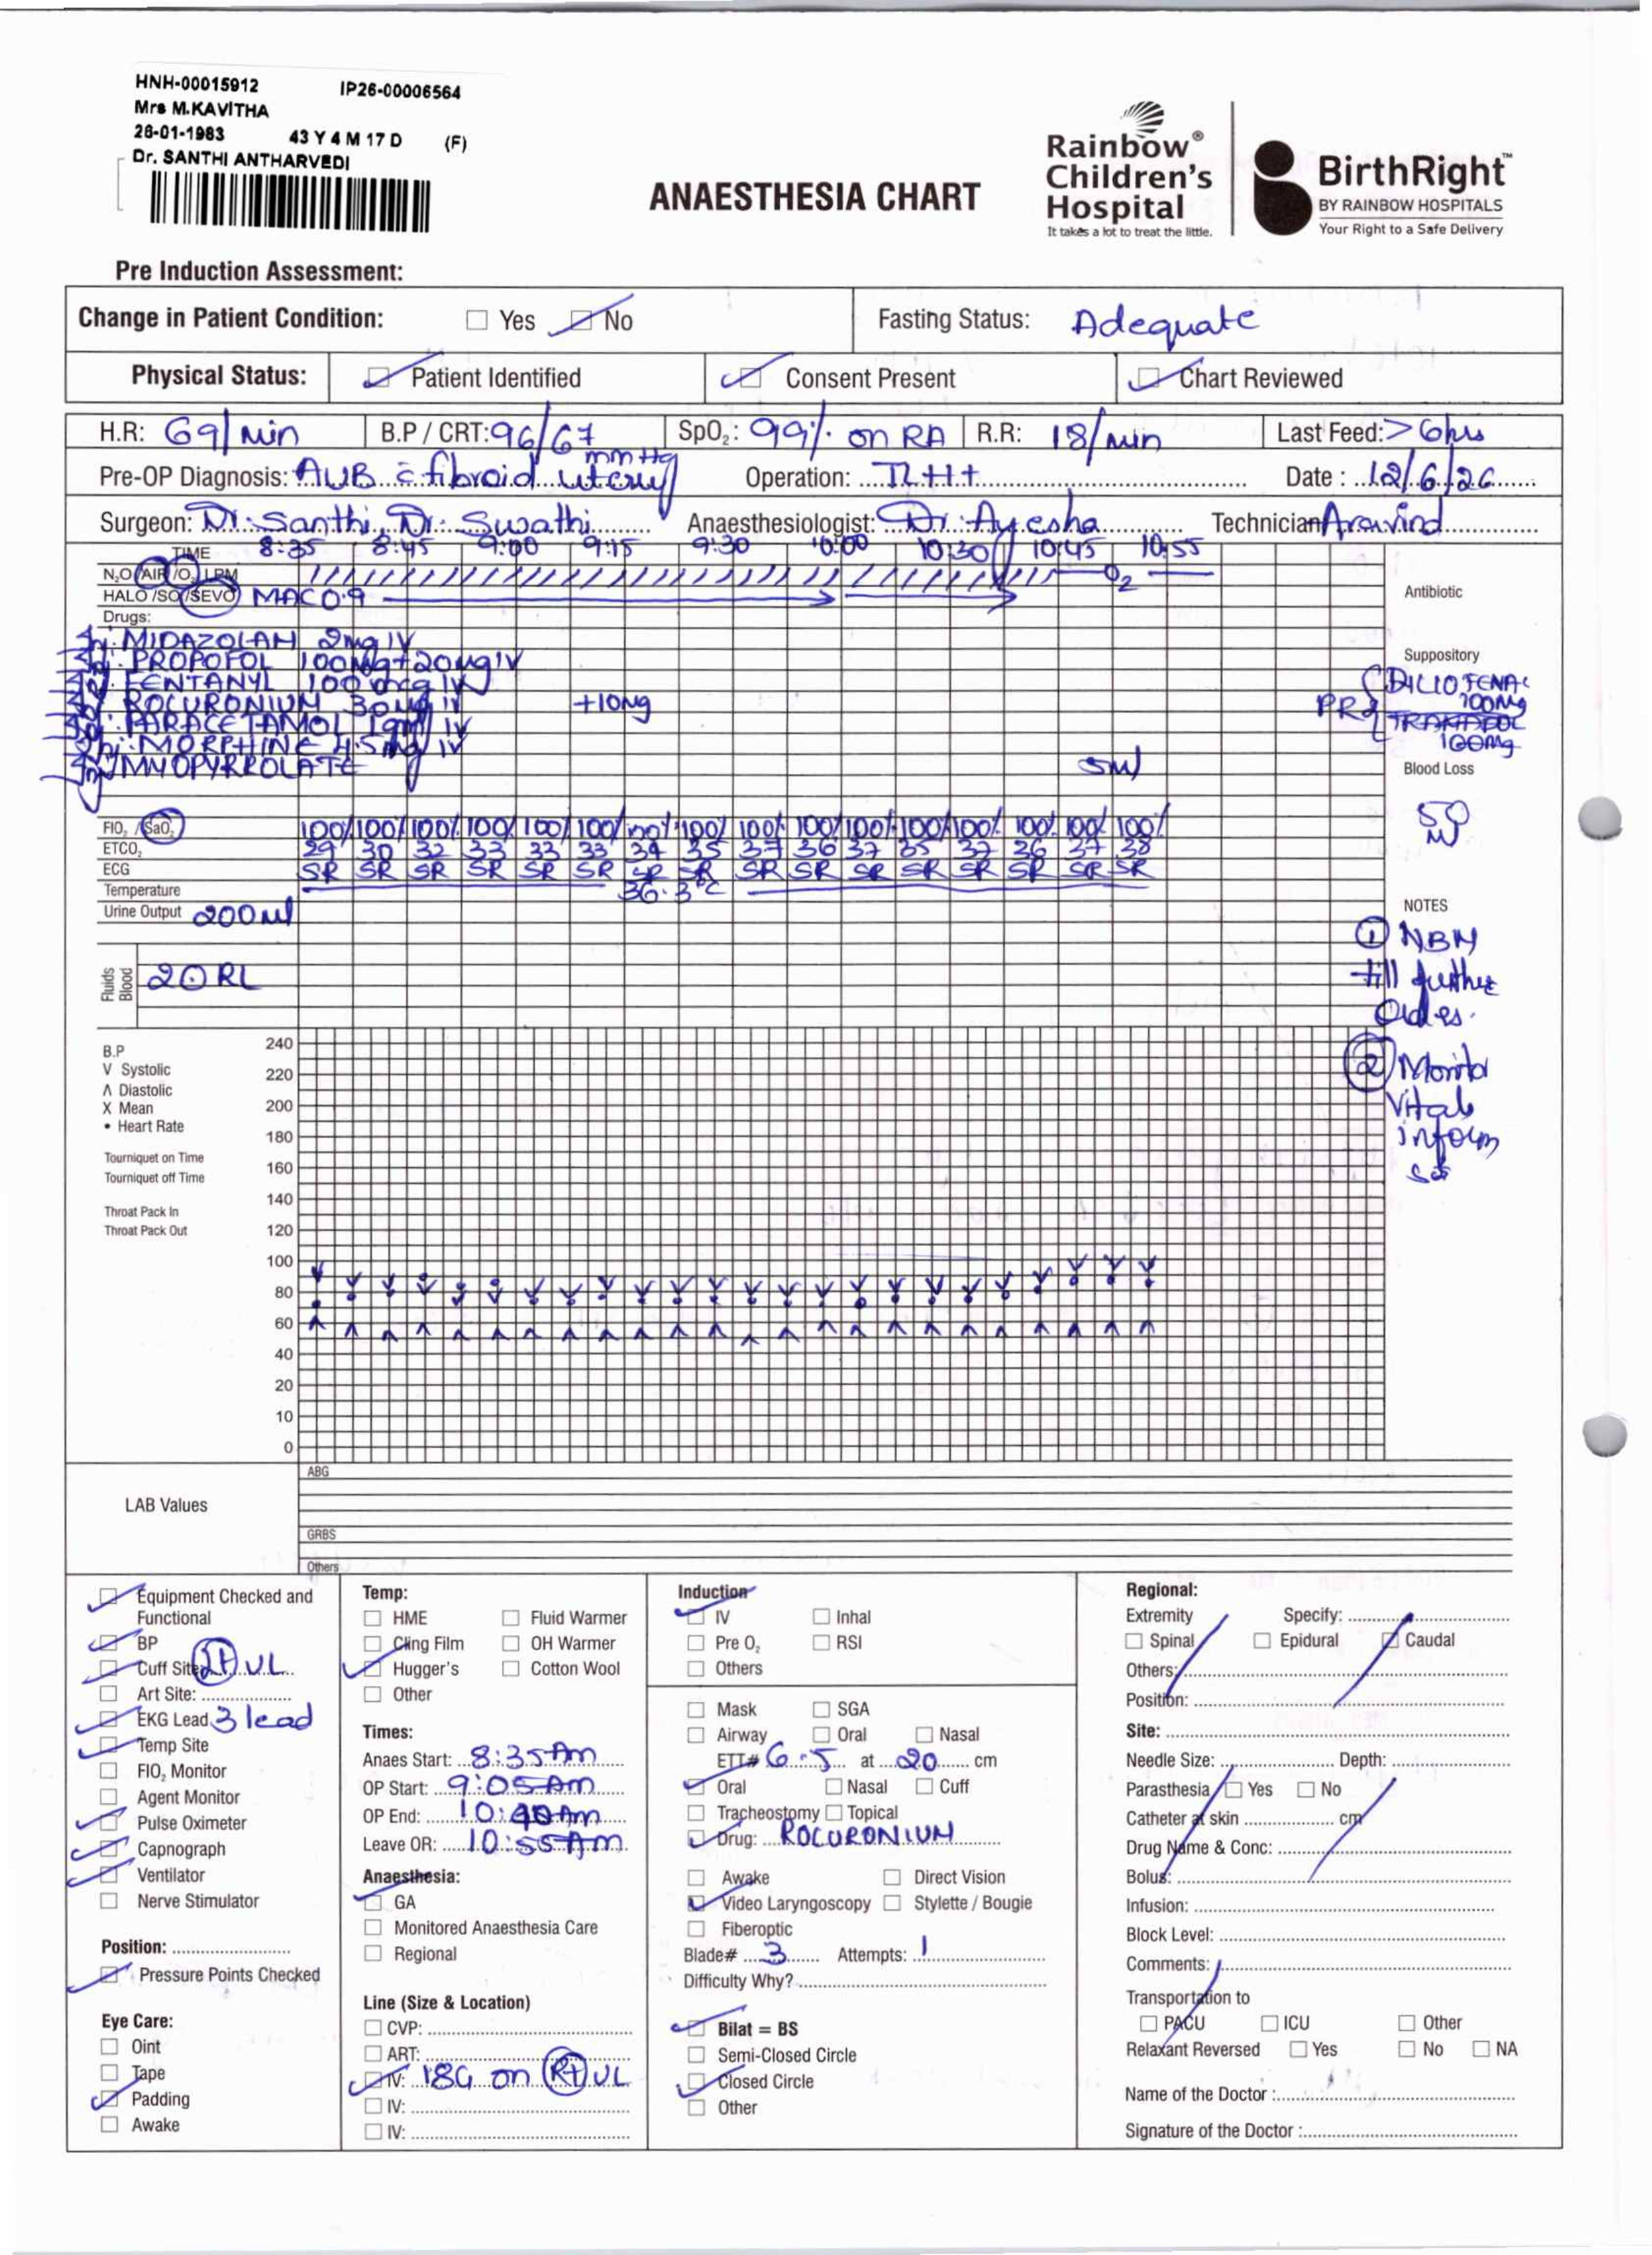 HNH-00015912 IP26-00006564
Mrs M.KAVITHA
26-01-1983 43 Y 4 M 17 D (F)
Dr. SANTHI ANTHARVEDI
ANAESTHESIA CHART
Rainbow®
Children's
Hospital
It takes a lot to treat the little.
BirthRight™
BY RAINBOW HOSPITALS
Your Right to a Safe Delivery
Pre Induction Assessment:
Change in Patient Condition: Yes No Fasting Status: Adequate
Physical Status: Patient Identified Consent Present Chart Reviewed
H.R: 69/min B.P / CRT: 96/67 mmHg SpO₂: 99% on RA R.R: 18/min Last Feed: >6hrs
Pre-OP Diagnosis: AUB c̄ fibroid uterus Operation: TLH+ Date : 12/6/26
Surgeon: Dr. Santhi, Dr. Swathi Anaesthesiologist: Dr. Ayesha Technician Aravind
TIME 8:35 8:45 9:00 9:15 9:30 10:00 10:30 10:45 10:55
N₂O /AIR /O₂ LPM O₂
HALO /SO /SEVO MAC 0.9
Antibiotic
Drugs:
Inj. MIDAZOLAM 2mg IV
PROPOFOL 100mg+20mg IV
FENTANYL 100mcg IV
ROCURONIUM 30mg IV +10mg
PARACETAMOL 1gm IV
MORPHINE 4.5mg IV
MYOPYRROLATE 5ml
Suppository
PR DICLOFENAC 100mg
TRAMADOL 100mg
Blood Loss
50 ml
FIO₂ /SaO₂ 100% 100% 100% 100% 100% 100% 100% 100% 100% 100% 100% 100% 100% 100% 100% 100%
ETCO₂ 29 30 32 33 33 33 34 35 37 36 37 35 37 36 37 38
ECG SR SR SR SR SR SR SR SR SR SR SR SR SR SR SR SR
Temperature 36.3°C
Urine Output 200ml
Fluids Blood 20 RL
NOTES
① NBM
till further
Orders.
② Monitor
Vitals
inform
sos
B.P
V Systolic
Λ Diastolic
X Mean
• Heart Rate
Tourniquet on Time
Tourniquet off Time
Throat Pack In
Throat Pack Out
240
220
200
180
160
140
120
100
80
60
40
20
10
0
LAB Values
ABG
GRBS
Others
Equipment Checked and
Functional
BP
Cuff Site Lt UL
Art Site:
EKG Lead 3 lead
Temp Site
FIO₂ Monitor
Agent Monitor
Pulse Oximeter
Capnograph
Ventilator
Nerve Stimulator
Position:
Pressure Points Checked
Eye Care:
Oint
Tape
Padding
Awake
Temp:
HME Fluid Warmer
Cling Film OH Warmer
Hugger's Cotton Wool
Other
Times:
Anaes Start: 8:35 Am
OP Start: 9:05 Am
OP End: 10:40 Am
Leave OR: 10:55 Am
Anaesthesia:
GA
Monitored Anaesthesia Care
Regional
Line (Size & Location)
CVP:
ART:
IV: 18G on Rt UL
IV:
IV:
Induction
IV Inhal
Pre O₂ RSI
Others
Mask SGA
Airway Oral Nasal
ETT# 6.5 at 20 cm
Oral Nasal Cuff
Tracheostomy Topical
Drug: ROCURONIUM
Awake Direct Vision
Video Laryngoscopy Stylette / Bougie
Fiberoptic
Blade# 3 Attempts: 1
Difficulty Why?
Bilat = BS
Semi-Closed Circle
Closed Circle
Other
Regional:
Extremity Specify:
Spinal Epidural Caudal
Others:
Position:
Site:
Needle Size: Depth:
Parasthesia Yes No
Catheter at skin cm
Drug Name & Conc:
Bolus:
Infusion:
Block Level:
Comments:
Transportation to
PACU ICU Other
Relaxant Reversed Yes No NA
Name of the Doctor :
Signature of the Doctor :